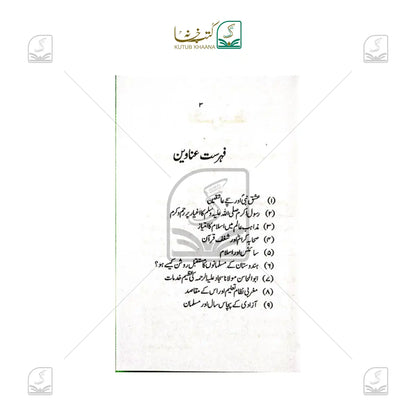 کتب خانہ
KUTUB KHAANA
۳
فہرست عناوین
(۱) عشق نبیؐ اور سچے عاشقین
(۲) رسول اکرم صلی اللہ علیہ وسلم کا اغیار پر رحم و کرم
(۳) مذاہب عالم میں اسلام کا امتیاز
(۴) صحابہ کرام اور شغف قرآن
(۵) سائنس اور اسلام
(۶) ہندوستان کے مسلمانوں کا مستقبل روشن کیسے ہو؟
(۷) ابوالمحاسن مولانا سجاد علیہ الرحمہ کی عظیم خدمات
(۸) مغربی نظام تعلیم اور اس کے مقاصد
(۹) آزادی کے پچاس سال اور مسلمان